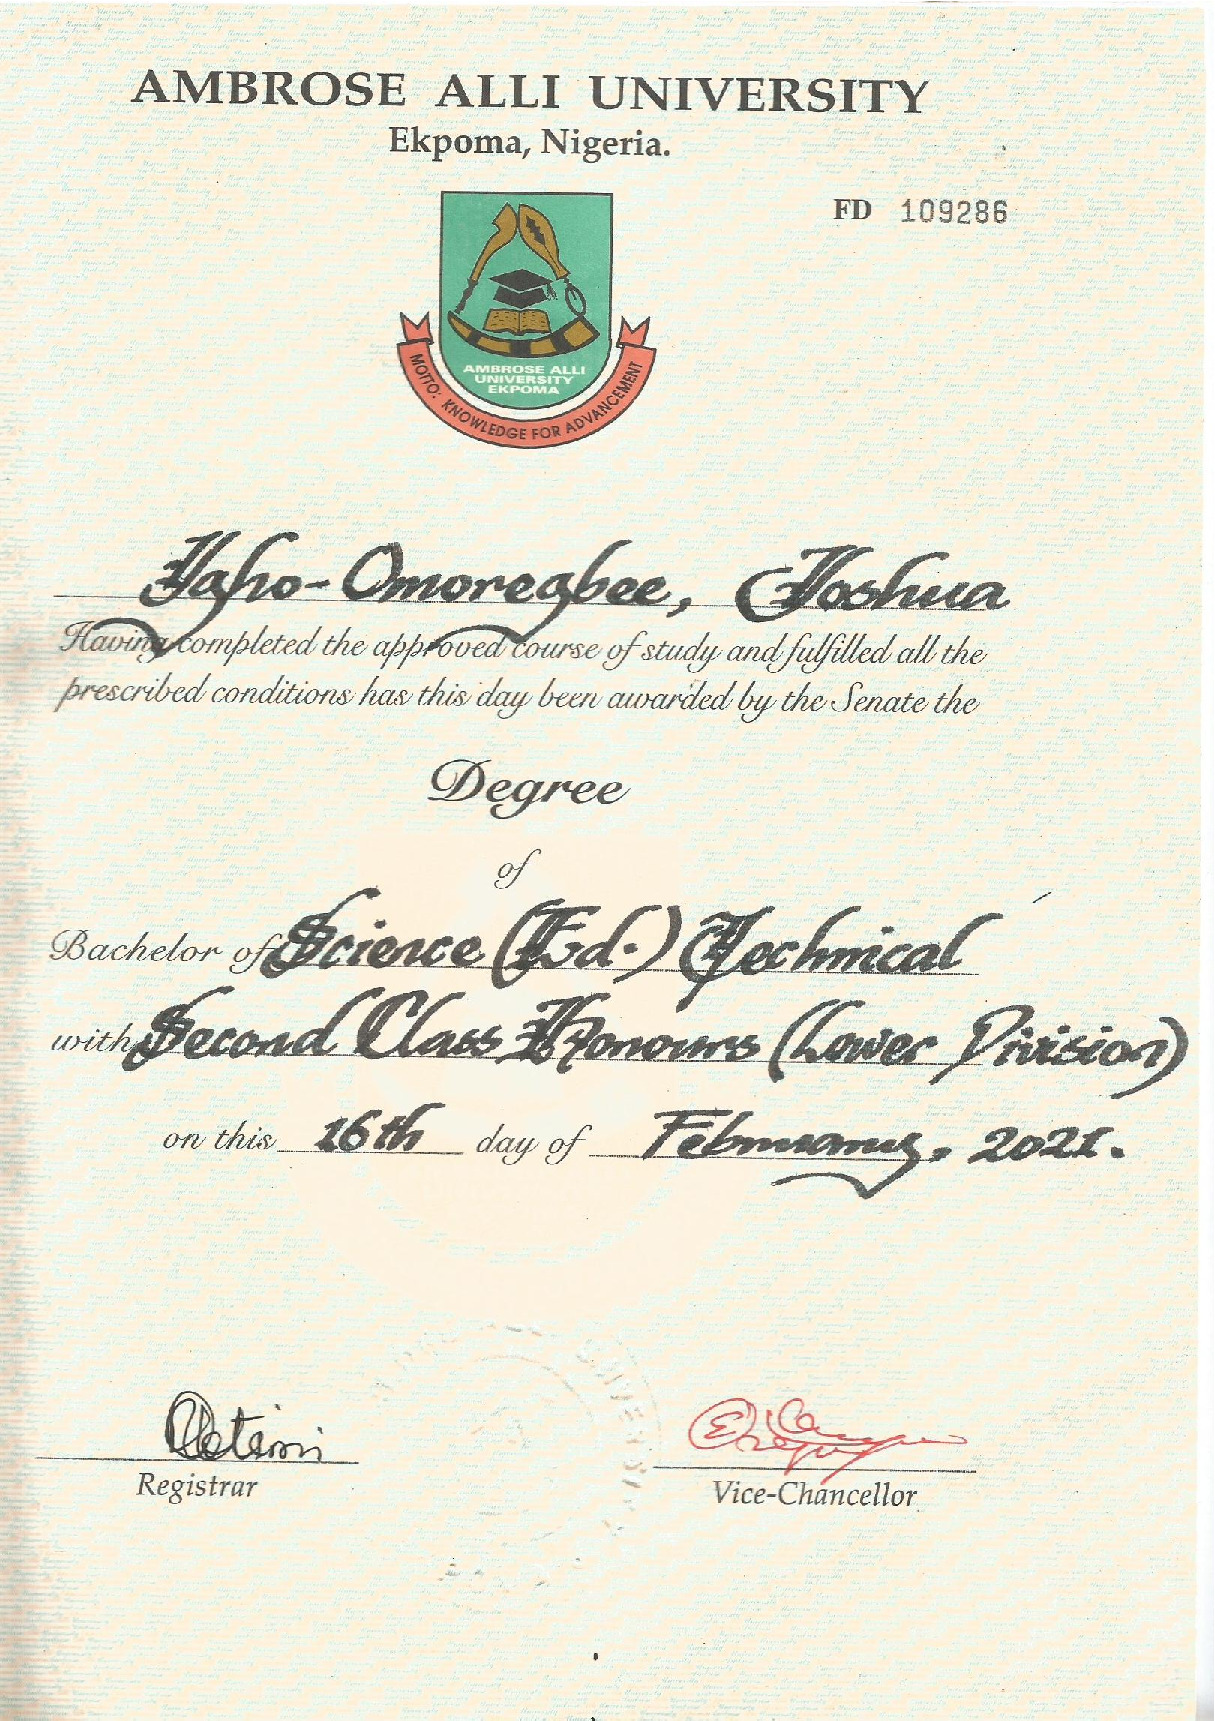 AMBROSE ALLI UNIVERSITY
Ekpoma, Nigeria.
FD 109286
AMBROSE ALLI
UNIVERSITY
EKPOMA
MOTTO: KNOWLEDGE FOR ADVANCEMENT
Omoregbee, Joshua
Having completed the approved course of study and fulfilled all the
prescribed conditions has this day been awarded by the Senate the
Degree
of
Bachelor of Science (Ed.) Technical
with Second Class Honours (Lower Division)
on this 16th day of February, 2021.
Registrar
Vice-Chancellor